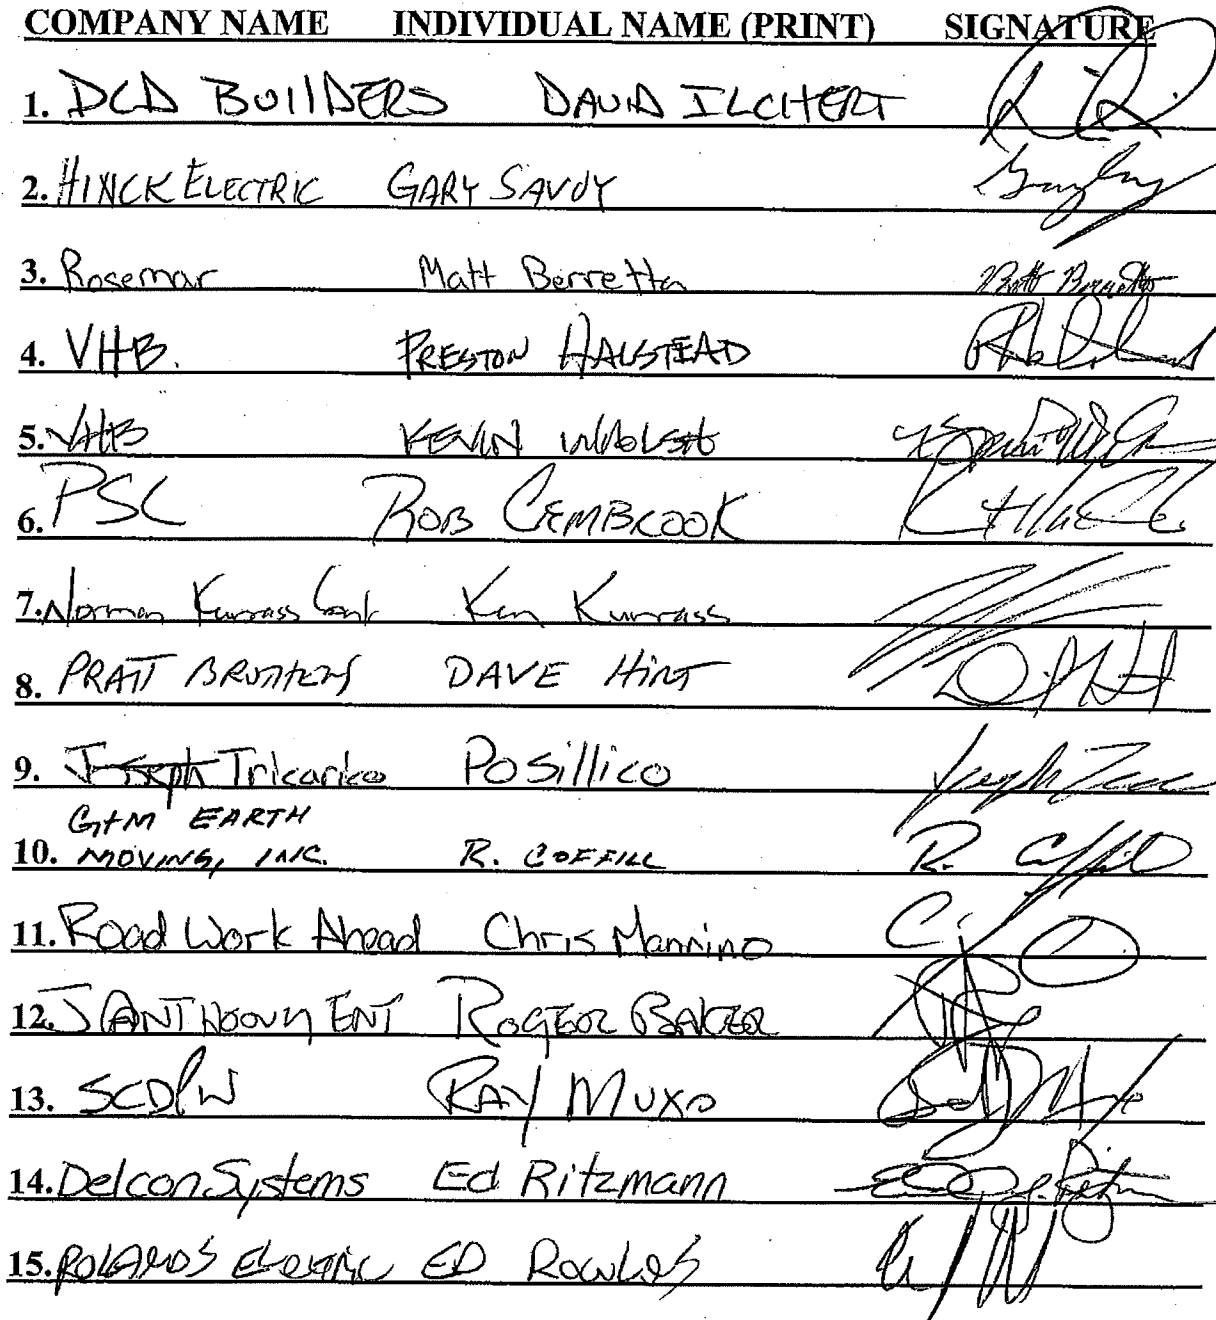 COMPANY NAME INDIVIDUAL NAME (PRINT) SIGNATURE
1. DCD BUIlDERS DAVID ILCHERT
2. HINCK ELECTRIC GARY SAVOY
3. Rosemar Matt Berretta
4. VHB. PRESTON HALSTEAD
5. VHB KEVIN WALSH
6. PSC ROB CEMBROOK
7. Norman Kurrass Cont Ken Kurrass
8. PRATT BROTHERS DAVE HIRT
9. Joseph Tricarico Posillico
G+M EARTH
10. MOVING, INC. R. COFFILL
11. Road Work Ahead Chris Mannino
12. J ANTHOONY ENT ROGER BAKER
13. SCDPW RAY MUXO
14. Delcon Systems Ed Ritzmann
15. ROLAND'S ELECTRIC ED ROWLES